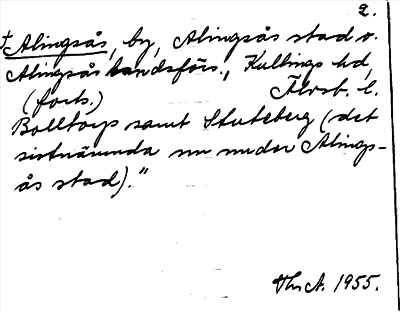 2.
†Alingsås, by, Alingsås stad o.
Alingsås landsförs., Kullings hd,
(forts.) Älvsb. l.
Bolltorp samt Stuteberg (det
sistnämnda nu under Alings-
ås stad)."
1955.